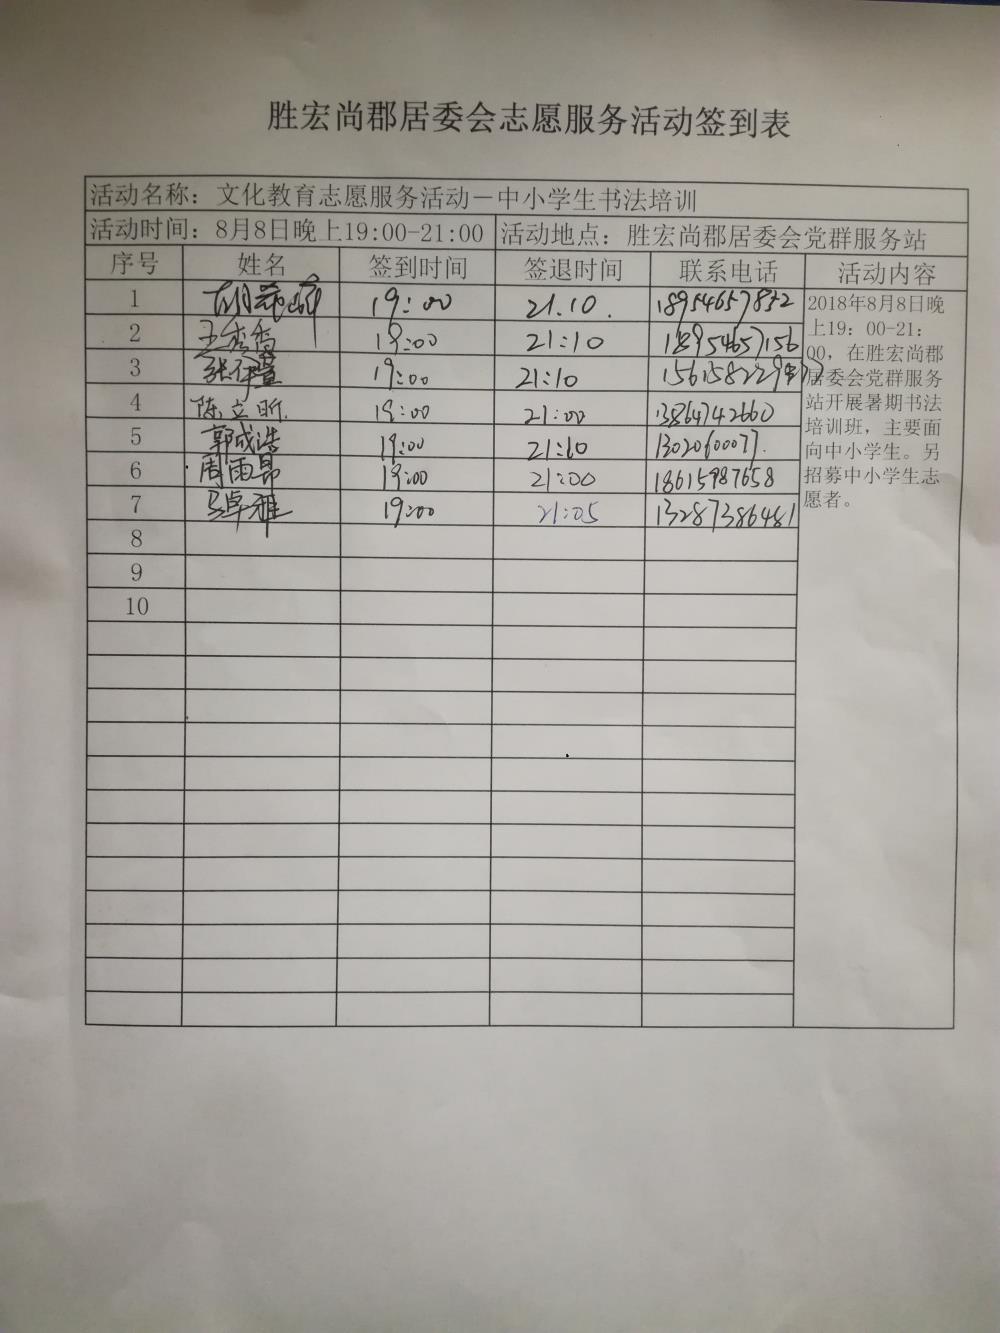 胜宏尚郡居委会志愿服务活动签到表
活动名称：文化教育志愿服务活动－中小学生书法培训
活动时间：8月8日晚上19:00-21:00 活动地点：胜宏尚郡居委会党群服务站
序号 姓名 签到时间 签退时间 联系电话 活动内容
1 19:00 21.10. 18954657852
2 王秀香 19:00 21:10 18954657156
3 19:00 21:10
4 陈立昕. 19:00 21:00 13864742660
5 郭成浩 19:00 21:10
6 周雨昂 19:00 21:00 18615987658
7 19:00 21:05 13287386481
8
9
10
2018年8月8日晚
上19：00-21：
00，在胜宏尚郡
居委会党群服务
站开展暑期书法
培训班，主要面
向中小学生。另
招募中小学生志
愿者。